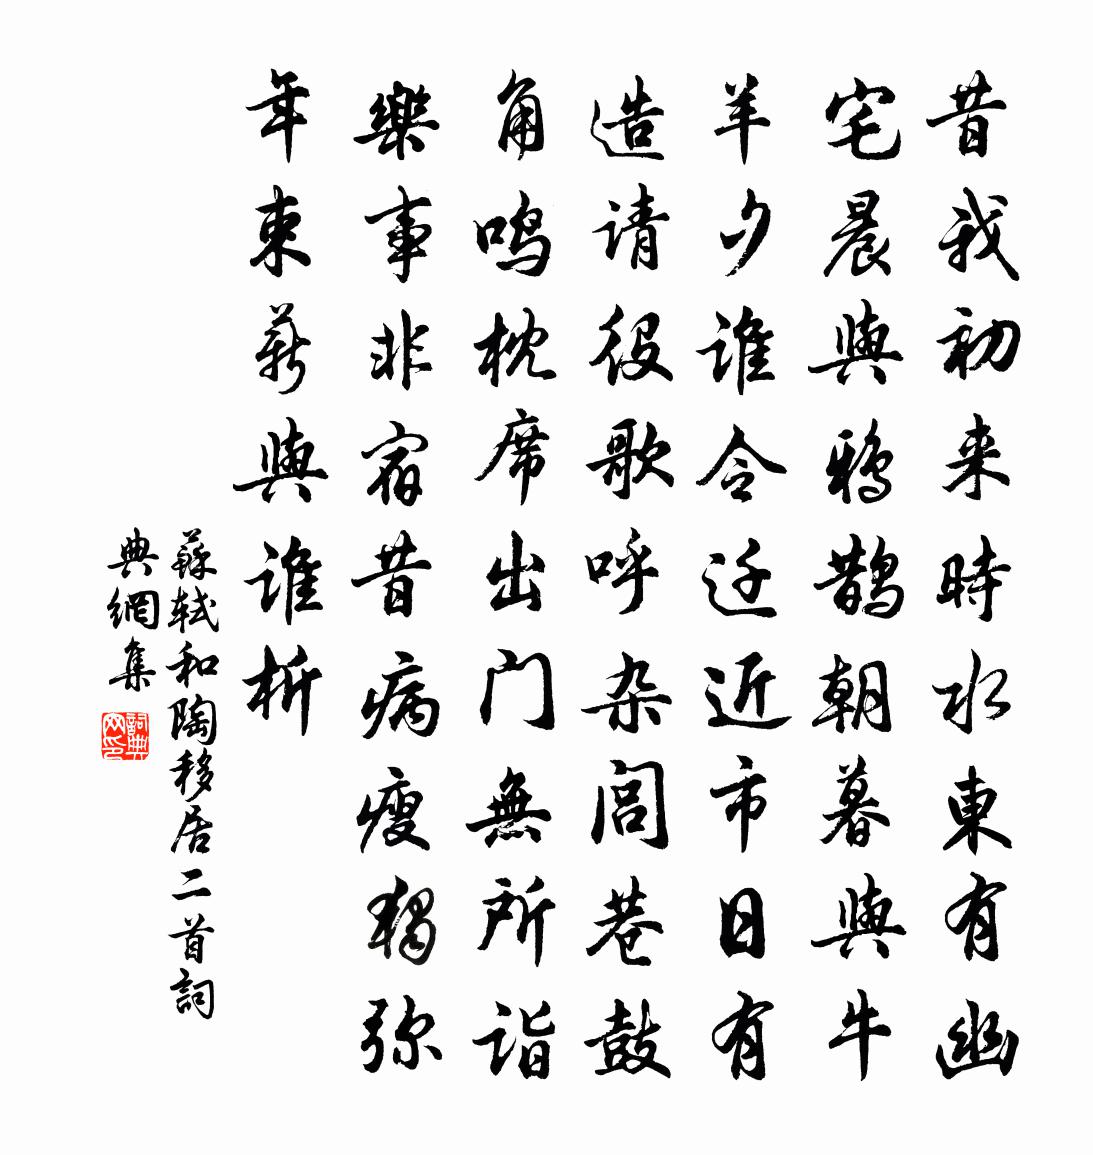 昔我初来時水東有幽
宅晨與鸦鹊朝暮與牛
羊夕谁令迁近市日有
造请役歌呼杂闾巷鼓
角鸣枕席出门無所诣
樂事非宿昔病瘦獨弥
年束薪與谁析
蘇軾和陶移居二首詞
典網集
詞典
网印